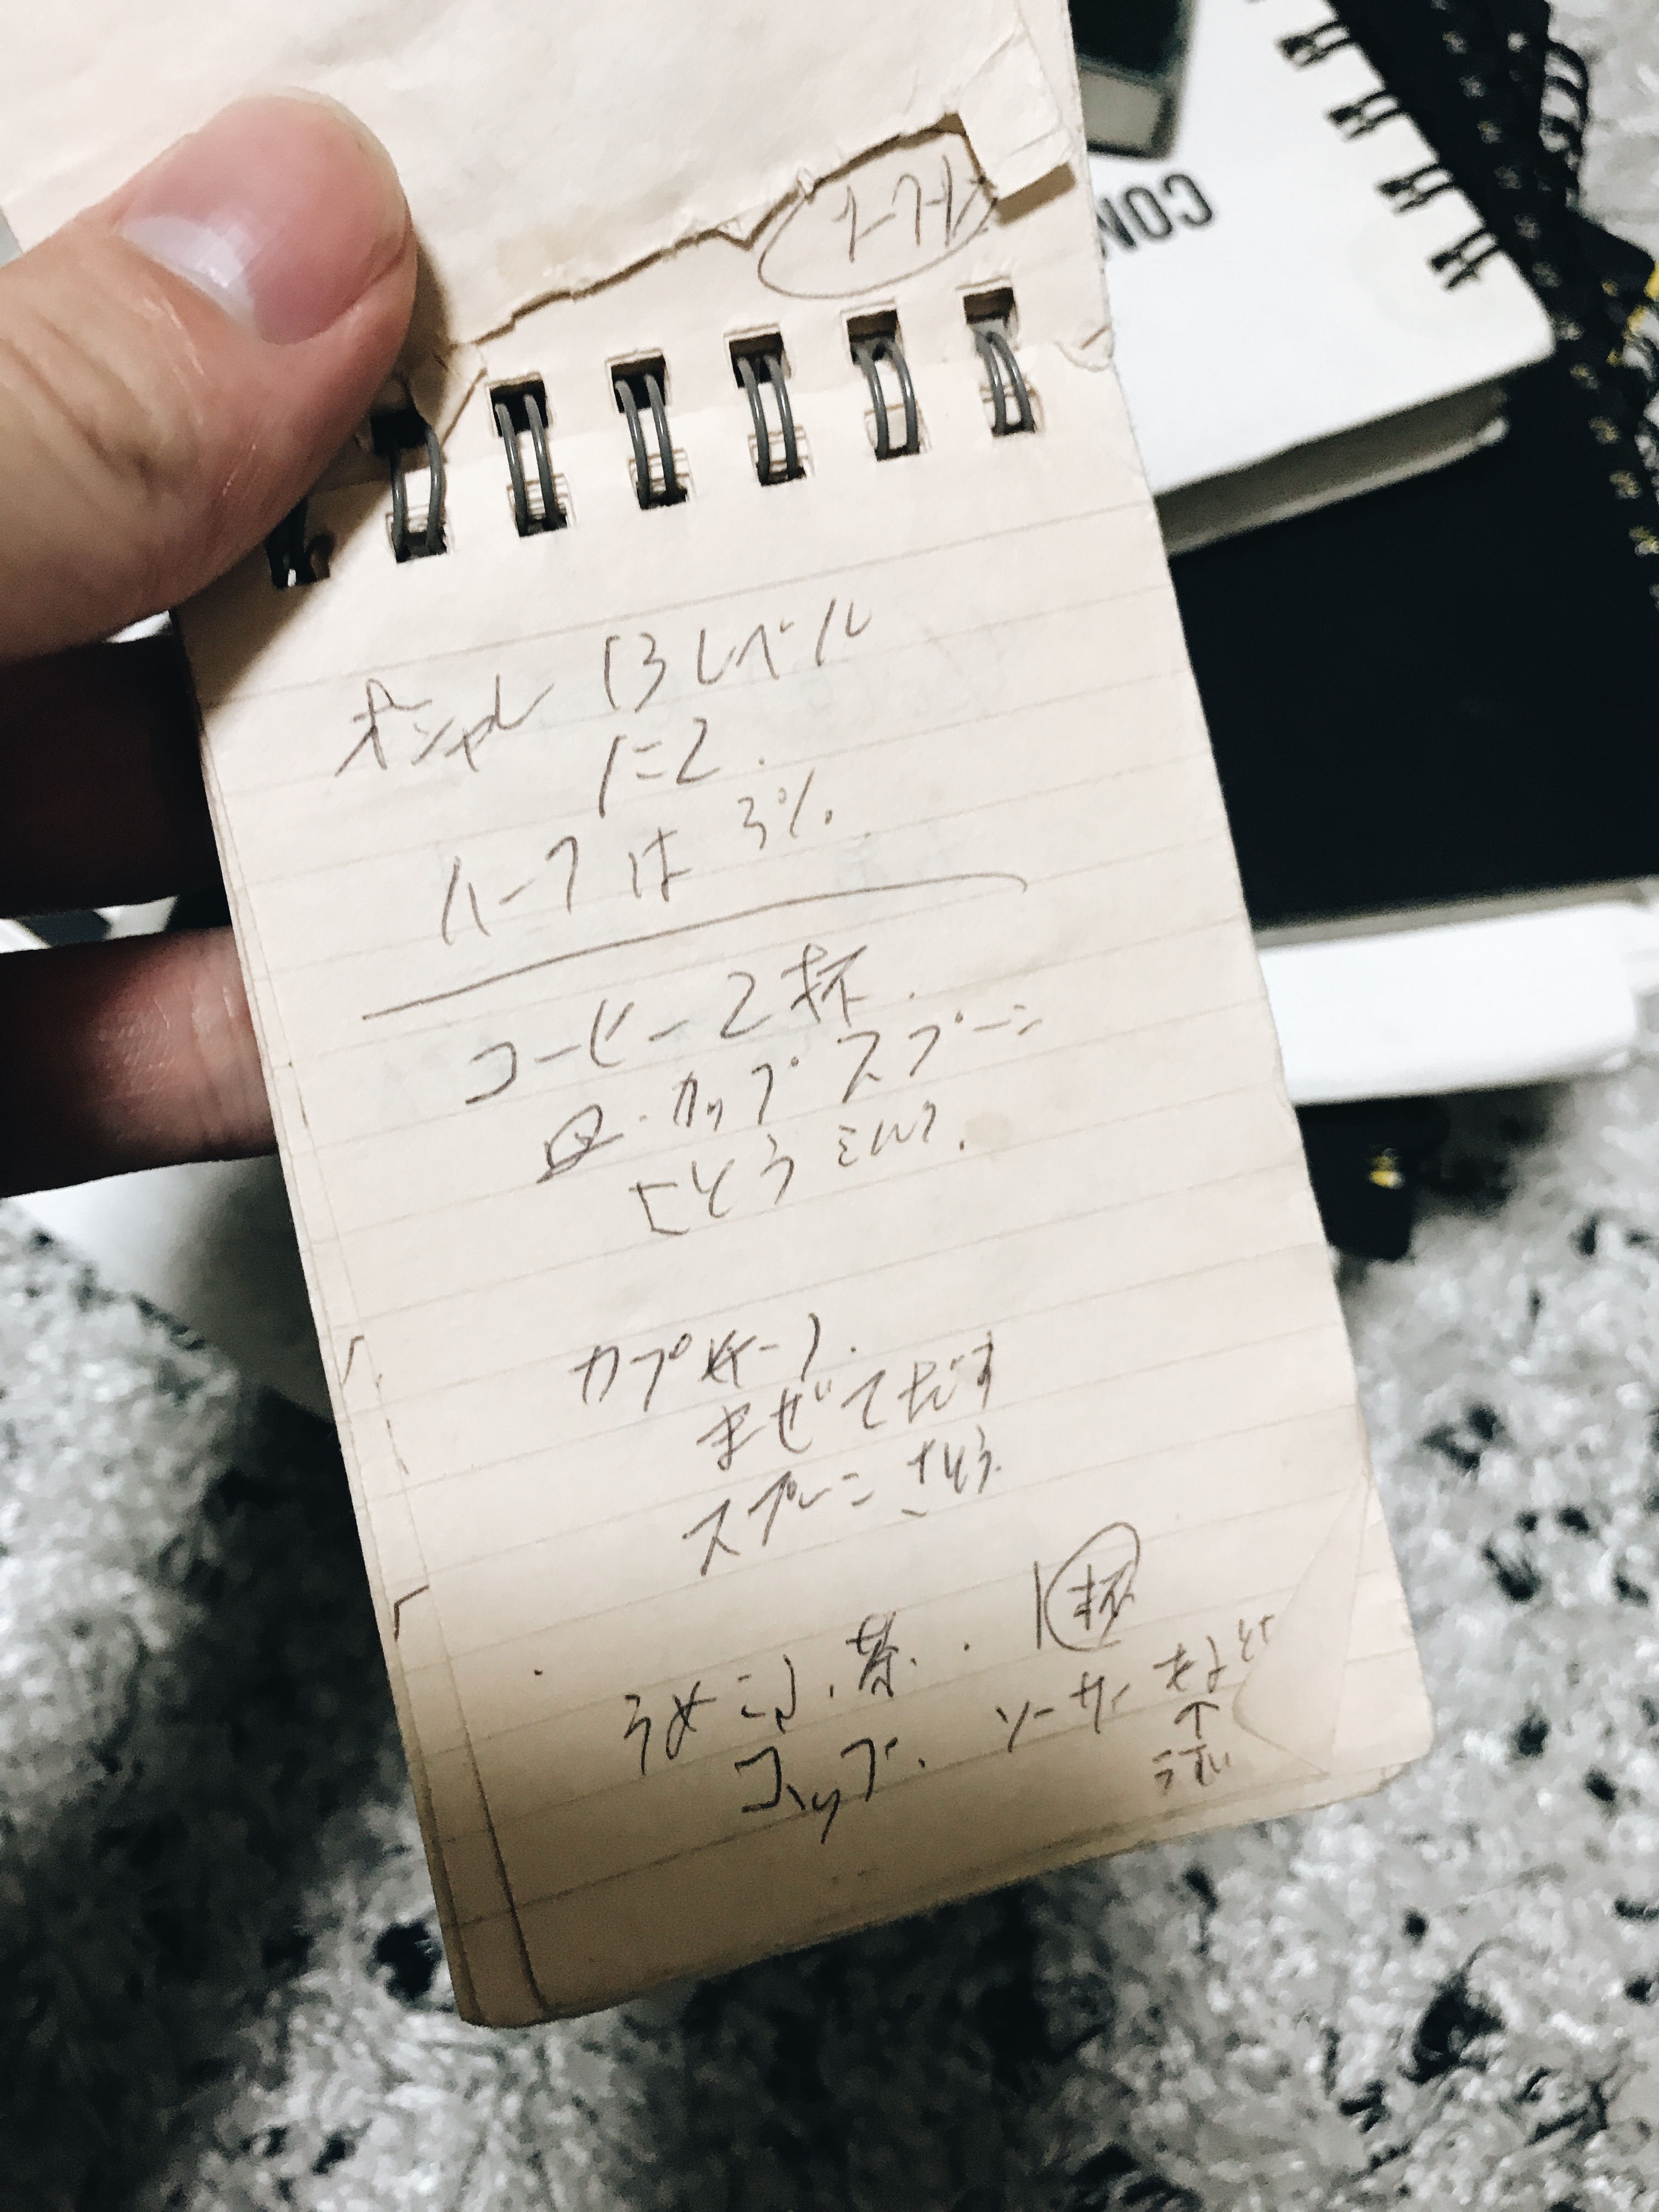 CON
オシャレ 13レベル
に2.
ハーフは 3%.
コーヒー2杯.
・カップ・スプーン
さとう ミルク.
カプチーノ.
まぜてだす
スプーン さとう.
うめこぶ茶. 1杯
コップ. ソーサー
↑